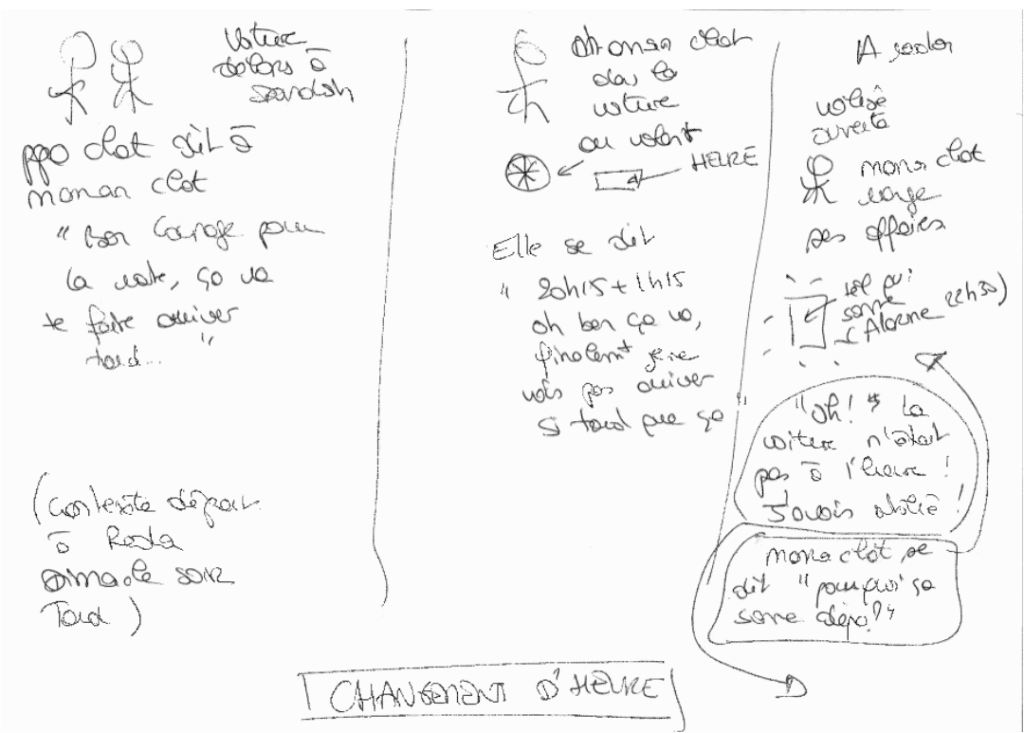 Voiture
dehors à
ppo chat dit à
maman chat
" Bon courage pour
la route, ça va
te faire arriver
tard... "
(Contexte départ
à
dimanche soir
Tard)
maman chat
dans la
voiture
au volant
HEURE
Elle se dit
" 20h15 + 1h15
oh ben ça va,
finalemt je ne
vais pas arriver
si tard que ça "
A
valise
ouverte
maman chat
range
ses affaires
tél qui
sonne
(Alarme 22h30)
"Oh! " La
voiture n'était
pas à l'heure !
J'avais oublié !
maman chat se
dit " pourquoi ça
sonne déjà ? "
CHANGEMENT D'HEURE